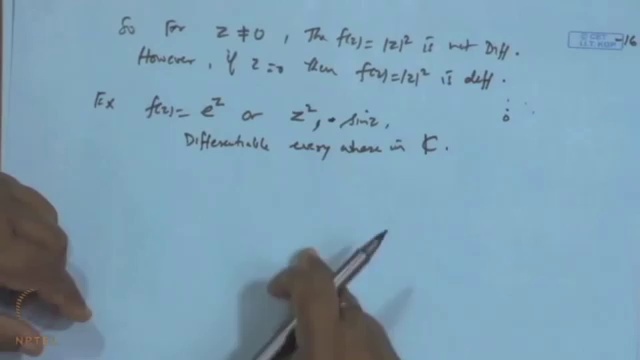 So For z ≠ 0, The f(z) = |z|² is not Diff.
However, if z = 0 then f(z) = |z|² is diff.
Ex f(z) = e^z or z², sin z,
Differentiable every where in ₵.
© CET
I.I.T. KGP
-16
NPTEL